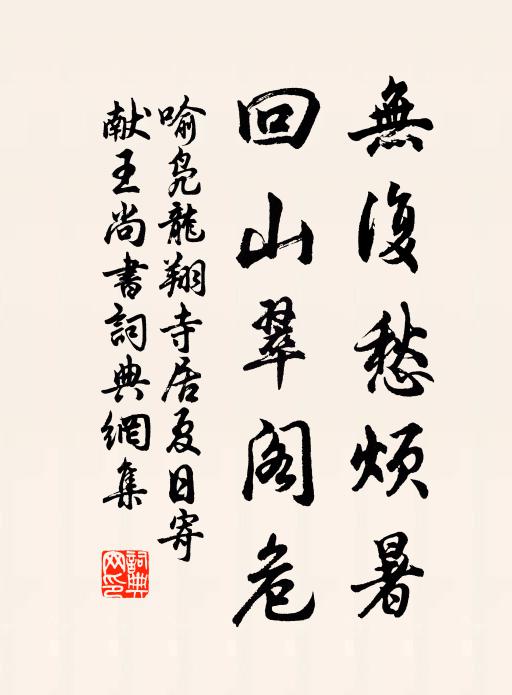 無復愁煩暑
回山翠阁危
喻凫龍翔寺居夏日寄
献王尚書詞典網集
詞典
网印